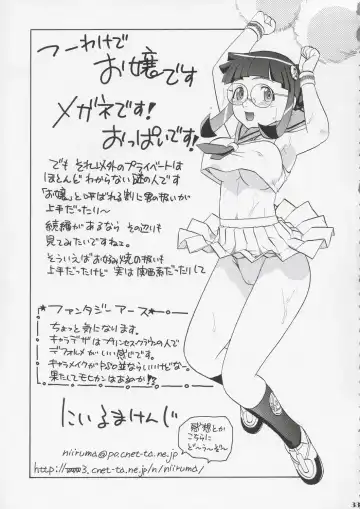 つーわけで
お嬢です
メガネです!
おっぱいです!
でも それ以外のプライベートは
ほとんどわからない謎の人です
「お嬢」と呼ばれる割に男の扱いが
上手だったり〜
続編があるなら その辺りも
見てみたいですねェ。
そういえばお好み焼の扱いも
上手だったけど 実は関西系だったりして
*ファンタジーアース*
ちょっと気になります。
キャラデザはプリンセスクラウンの人で
デフォルメがいい感じです。
キャラメイクがPSO並ならいいけどなー。
果たしてモヒカンはあるのか!?
にいるまけんじ
感想とか
こちらに
ど〜う〜ぞ〜
niiruma@pa.cnet-ta.ne.jp
http://www3.cnet-ta.ne.jp/n/niiruma/
33